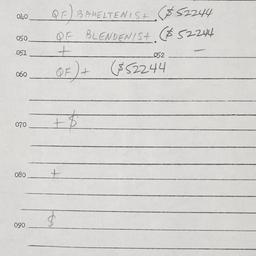 040 QF) BAHELTENIST ($52244
050 QF BLENDENIST. ($52244
051 + 052 -
060 QF)+ ($52244
070 +$
080 +
090 $